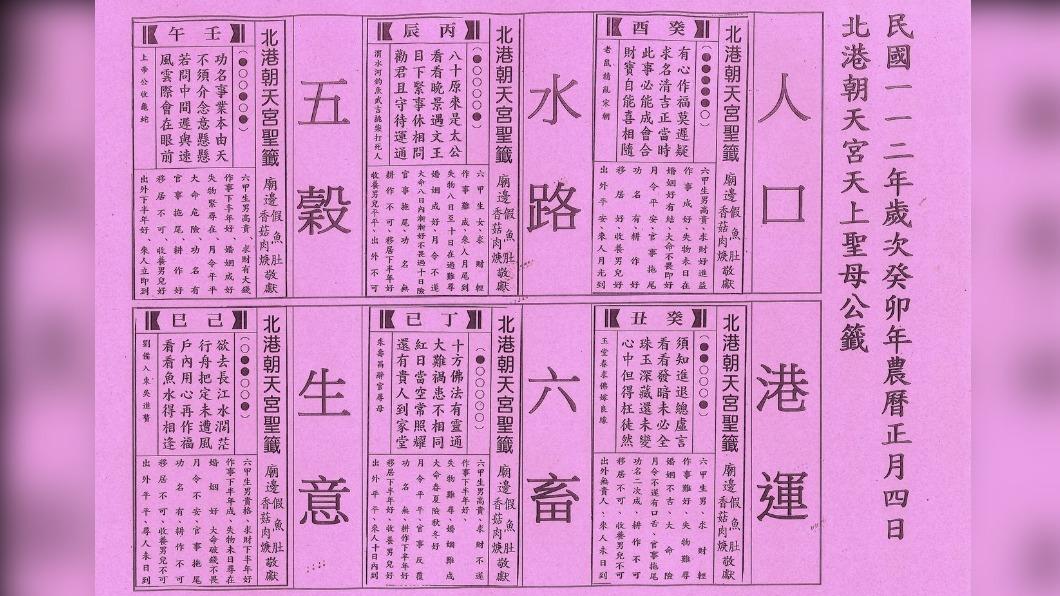 民國一一二年歲次癸卯年農曆正月四日
北港朝天宮天上聖母公籤
人口
北港朝天宮聖籤
廟邊假魚肚
香菇肉焿敬獻
癸酉
有心作福莫遲疑
求名清吉正當時
此事必能成會合
財寶自能喜相隨
六甲生男高貴、求財好進益
作事成好、失物未日在
婚姻好有結、大命不畏即好
月令平安、官事拖尾
功名有、耕作好
移居好、收養男兒好
出外平安、來人月光到
水路
北港朝天宮聖籤
廟邊假魚肚
香菇肉焿敬獻
丙辰
八十原來是太公
看看晚景遇文王
目下緊事休相問
勸君且守待運通
六甲生女、求財輕
作事難成、來人月尾到
失物八日至十日在過難尋
婚姻成好、月令不遂
大命八日內漸漸好不畏過十日險
官事拖尾、功名無
耕作不可、移居下半年好
收養男兒平平、出外不可
五穀
北港朝天宮聖籤
廟邊假魚肚
香菇肉焿敬獻
壬午
功名事業本由天
不須介念意懸懸
若問中間遲與速
風雲際會在眼前
上帝公收龜蛇
六甲生男高貴、求財有大錢
作事下半年好、婚姻成好
失物緊尋在、月令平平
大命危險、功名有
官事拖尾、耕作好
移居不可、收養男兒好
出外下半年好、來人立即到
港運
北港朝天宮聖籤
廟邊假魚肚
香菇肉焿敬獻
癸丑
須知進退總虛言
看看發暗未必全
珠玉深藏還未變
心中但得枉徒然
六甲生男、求財輕
作事難好、失物難尋
婚姻不吉、大命險
月令不遂有口舌、官事拖尾
功名二次成、耕作不可
移居不可、收養男兒不可
出外無貴人、來人未日到
六畜
北港朝天宮聖籤
廟邊假魚肚
香菇肉焿敬獻
丁巳
十方佛法有靈通
大難禍患不相同
紅日當空常照耀
還有貴人到家堂
朱壽昌辭官尋母
六甲生男高貴、求財不遂
作事下半年好、
失物難尋、婚姻難成
大命春夏險秋冬好
月令平平、官事反覆
功名無、耕作下半年好
移居下半年好、收養男兒好
出外平平、來人十日內到
生意
北港朝天宮聖籤
廟邊假魚肚
香菇肉焿敬獻
己巳
欲去長江水濶茫
行舟把定未遭風
戶內用心再作福
看看魚水得相逢
劉備入東吳進贅
六甲生男貴格、求財下半年好
作事下半年成、失物未日尋在
婚姻好、大命破錢不畏
月令不安、官事拖尾
功名有、耕作不可
移居不可、收養男兒不可
出外平平、尋人未日到